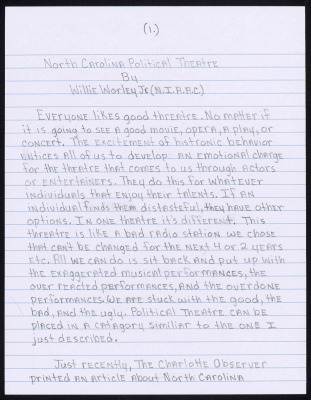 (1.)
North Carolina Political Theatre
By
Willie Worley Jr (N.I.A.A.C.)
Everyone likes good threatre. No matter if
it is going to see a good movie, opera, a play, or
concert. The excitement of histronic behavior
entices all of us to develop an emotional charge
for the theatre that comes to us through actors
or entertainers. They do this for whatever
individuals that enjoy their talents. If an
individual finds them distasteful, they have other
options. In one theatre it's different. This
threatre is like a bad radio station we chose
that can't be changed for the next 4 or 2 years
etc. All we can do is sit back and put up with
the exaggerated musical performances, the
over reacted performances, and the overdone
performances. We are stuck with the good, the
bad, and the ugly. Political Theatre can be
placed in a catagory similiar to the one I
just described.
Just recently, The Charlotte Observer
printed an article about North Carolina